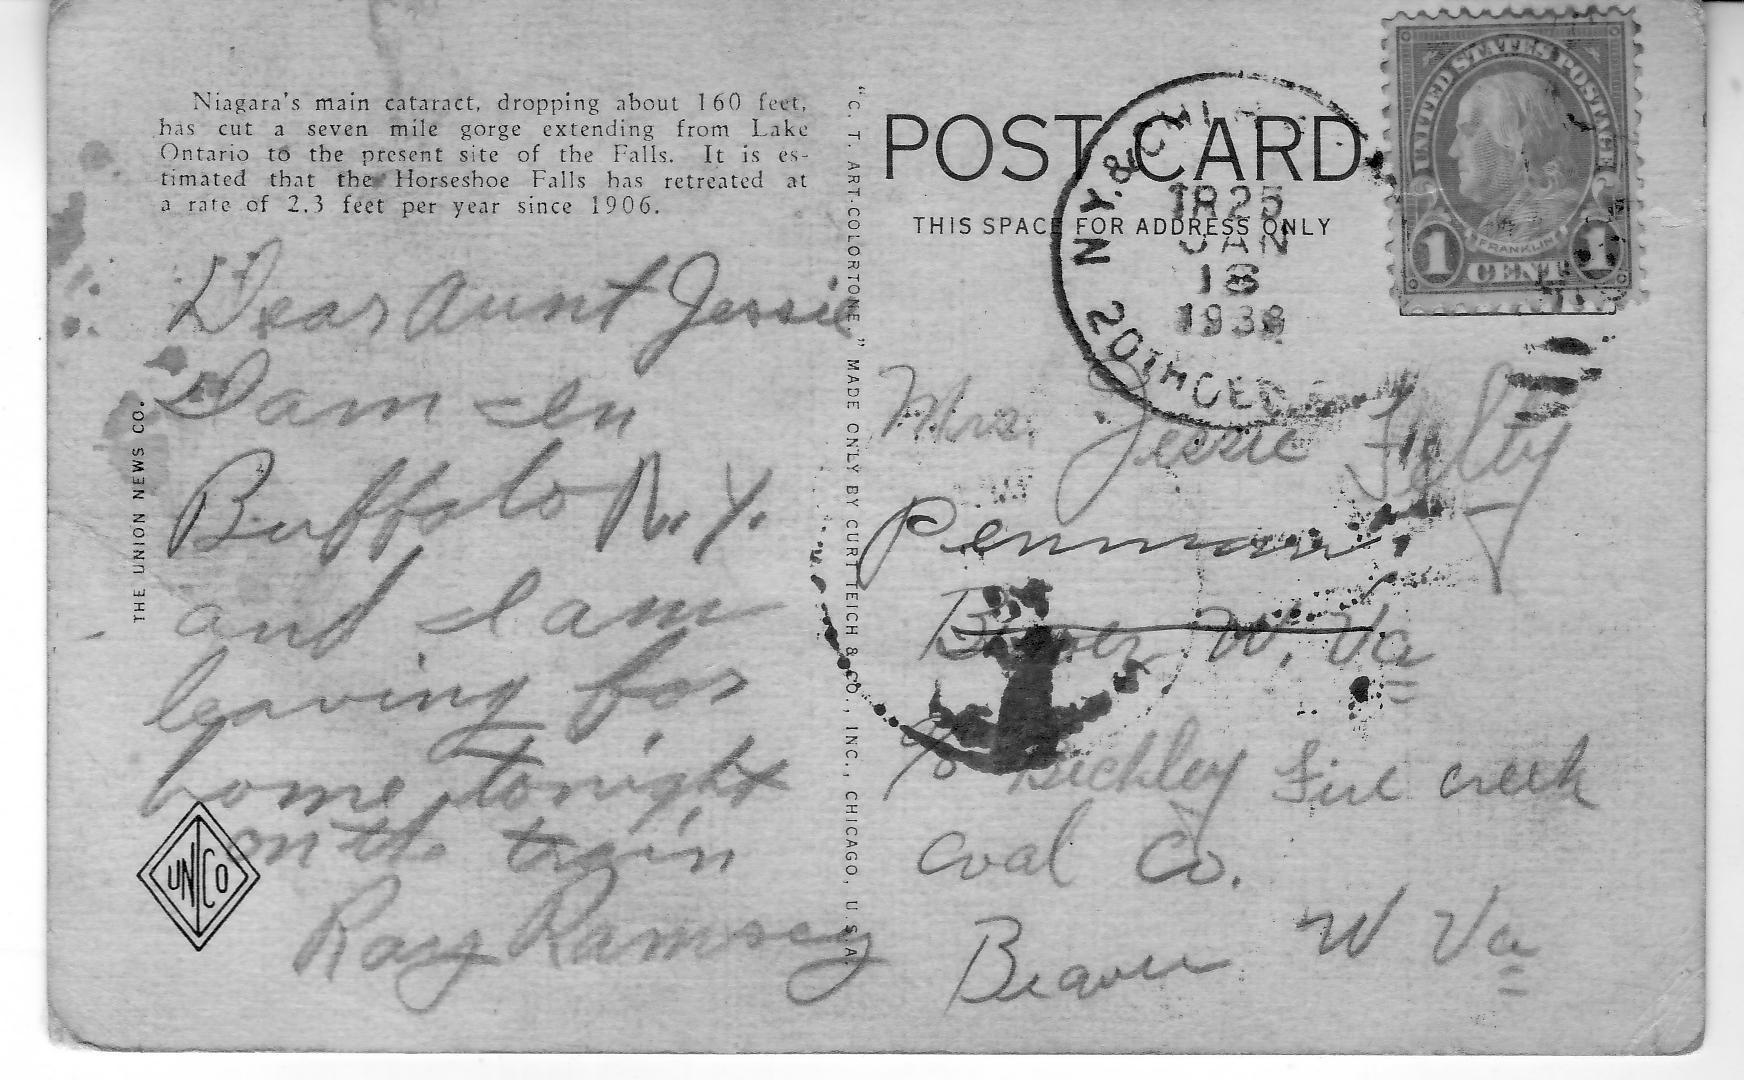 Niagara's main cataract, dropping about 160 feet,
has cut a seven mile gorge extending from Lake
Ontario to the present site of the Falls. It is es-
timated that the Horseshoe Falls has retreated at
a rate of 2.3 feet per year since 1906.
Dear Aunt Jessie
I am in
Buffalo N.Y.
and I am
leaving for
home tonight
on the train
Ray Ramsey
THE UNION NEWS CO.
UN CO
"C. T. ART-COLORTONE" MADE ONLY BY CURT TEICH & CO., INC., CHICAGO, U.S.A.
POST CARD
THIS SPACE FOR ADDRESS ONLY
N.Y. & CHI
JAN
18
UNITED STATES POSTAGE
FRANKLIN
1 CENT 1
Mrs. Jessie
Penman
W. Va
c/o Beckley Fire creek
coal Co.
Beaver W Va